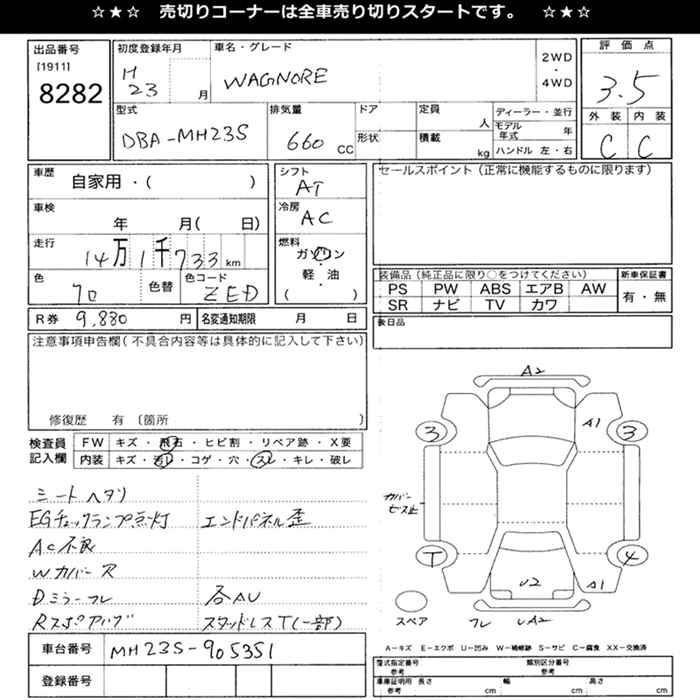 ☆★☆ 売切りコーナーは全車売り切りスタートです。 ☆★☆
出品番号 [1911] 8282
初度登録年月 H 23 月
車名・グレード WAGNORE
2WD ・ 4WD
評価点 3.5
外装 C 内装 C
型式 DBA-MH23S
排気量 660 CC
ドア 形状
定員 人 積載 kg
ディーラー・並行
モデル年式 年
ハンドル 左・右
車歴 自家用・( )
シフト AT
セールスポイント(正常に機能するものに限ります)
車検 年 月( 日)
冷房 AC
走行 14万1千733km
燃料 ガソリン ・ 軽油 ・ ( )
色 70 色替 色コード ZED
装備品(純正品に限り○をつけてください) 新車保証書
PS PW ABS エアB AW 有・無
SR ナビ TV カワ
R券 9,880 円 名変通知期限 月 日
後日品
注意事項申告欄(不具合内容等は具体的に記入して下さい)
修復歴 有 〔箇所
検査員記入欄
FW キズ・飛石・ヒビ割・リペア跡・X要
内装 キズ・汚レ・コゲ・穴・スレ・キレ・破レ
シートヘタリ
EGチェックランプ点灯 エンドパネル歪
AC不良
Wカバー R
Dミラーフレ 各AU
スタッドレスT(一部)
A2
A1
3 3
カバー
T 4
U2 A1
スペア フレ UA2
A−キズ E−エクボ U−凹み W−補修跡 S−サビ C−腐食 XX−交換済
車台番号 MH23S-905351
登録番号
型式指定番号 参考 類別区分番号 参考
車庫証明用 参考 長さ cm 幅 cm 高さ cm